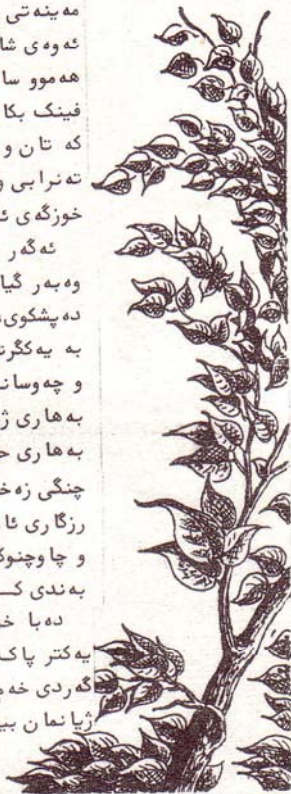 مەینەتی
ئەوەی شا
هەموو سا
فینک بکا
کە تان و
تەنرا بی و
خوزگەی ئ
ئەگەر
وەبەر گیا
دەپشکوی
بە یەکگرت
و چەوسان
بەهاری ژ
بەهاری ح
چنگی زەخ
رزگاری ئا
و چاوچنوک
بەندی کـ
دەبا خو
یەکتر پاک
گەردی خەم
ژیانمان بی